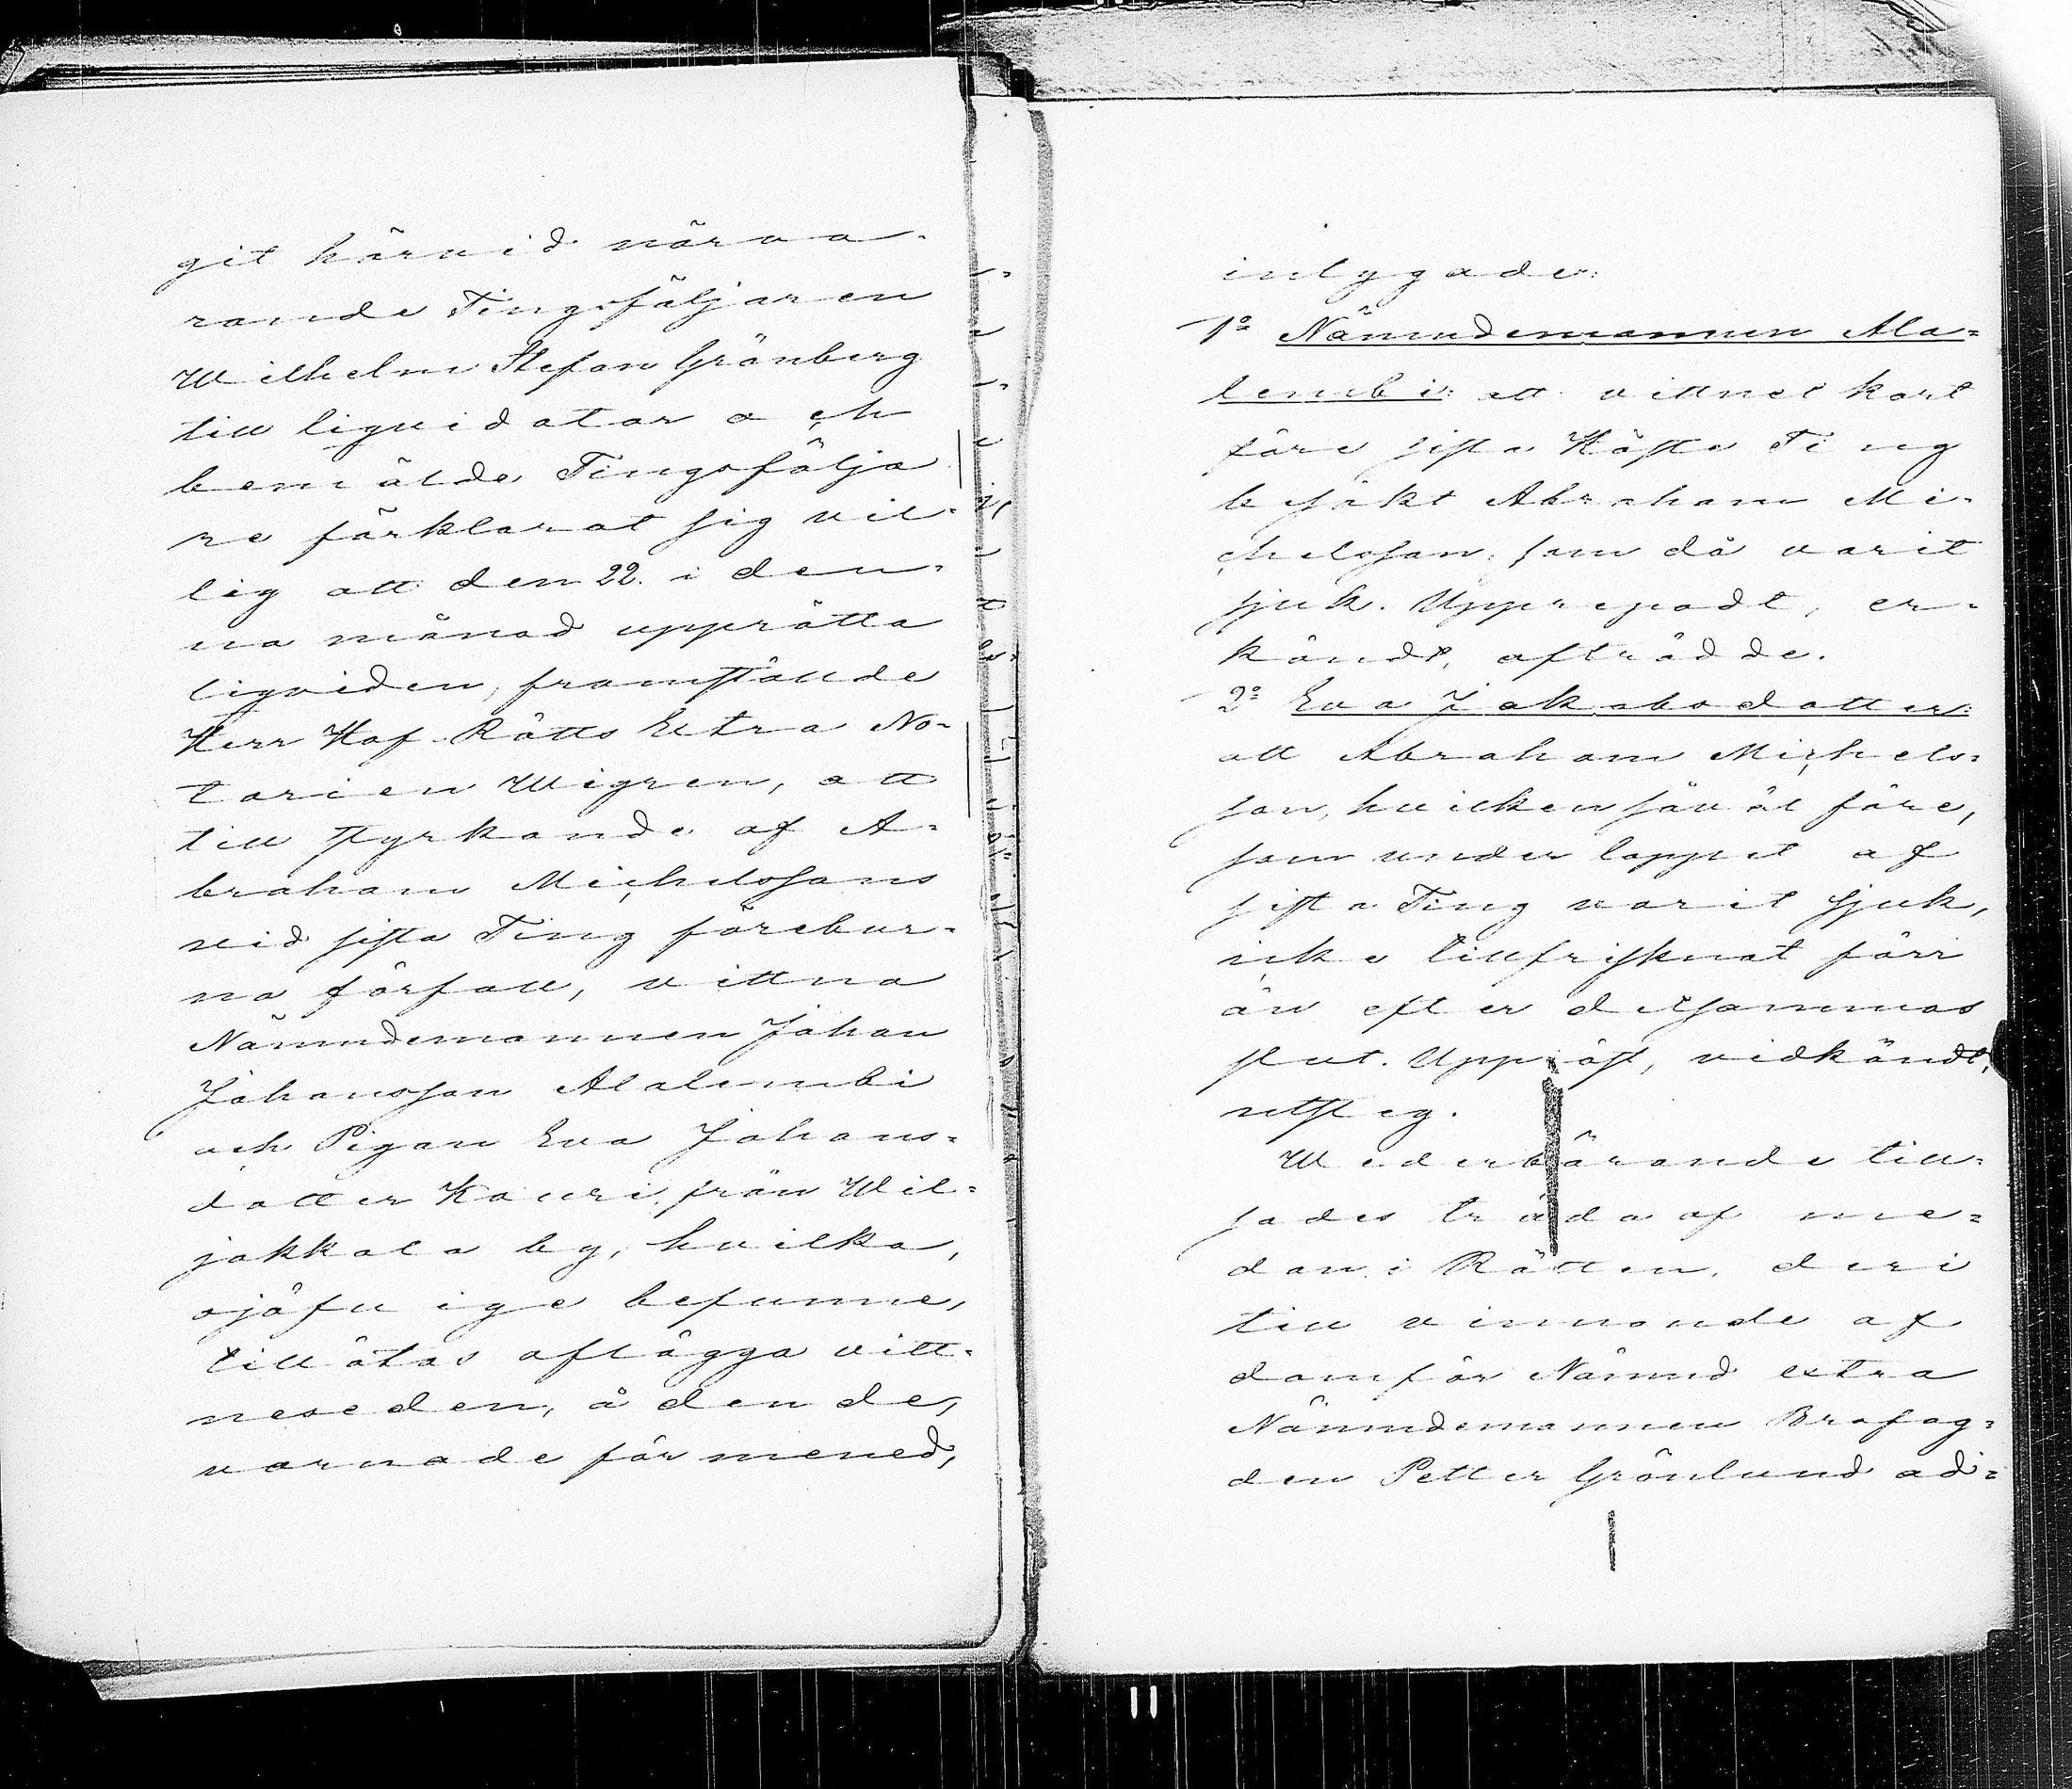 git härvid närva-
rande Tingsföljaren
Wilhelm Stefan Grönberg
till liqvidator och
bemälde Tingsfölja
re förklarat sig vil-
lig att den 22. i den-
na månad upprätta
liqviden, framstälde
Herr Hof-Rätts Extra No-
tarien Wigren, att
till styrkande af A-
braham Michelssons
vid sista Ting förebur-
na förfall, vittna
Nämndemannen Johan
Johansson Alalembi
och Pigan Eva Johans-
dotter Kauri från Wil-
jakkala by, hvilka,
ojäfvige befunne,
tillätos aflägga vitt-
neseden, å den de,
varnade för mened,
intygade:
1o Nämndemannen Ala-
lembi: att vittnet kort
före sista Höste Ting
besökt Abraham Mi-
chelsson, som då varit
sjuk. Upprepadt, er-
kändt, afträdde.
2o Eva Jakobsdotter:
att Abraham Michels-
son, hvilken såväl före,
som under loppet af
sista Ting varit sjuk,
icke tillfrisknat förr
än efter detsammas
slut. Uppläst, vidkändt,
utsteg.
Wederbörande till-
sades träda af me-
dan i Rätten, deri
till vinnande af
domför Nämnd extra
Nämndemannen Brofog-
den Petter Grönlund ad-